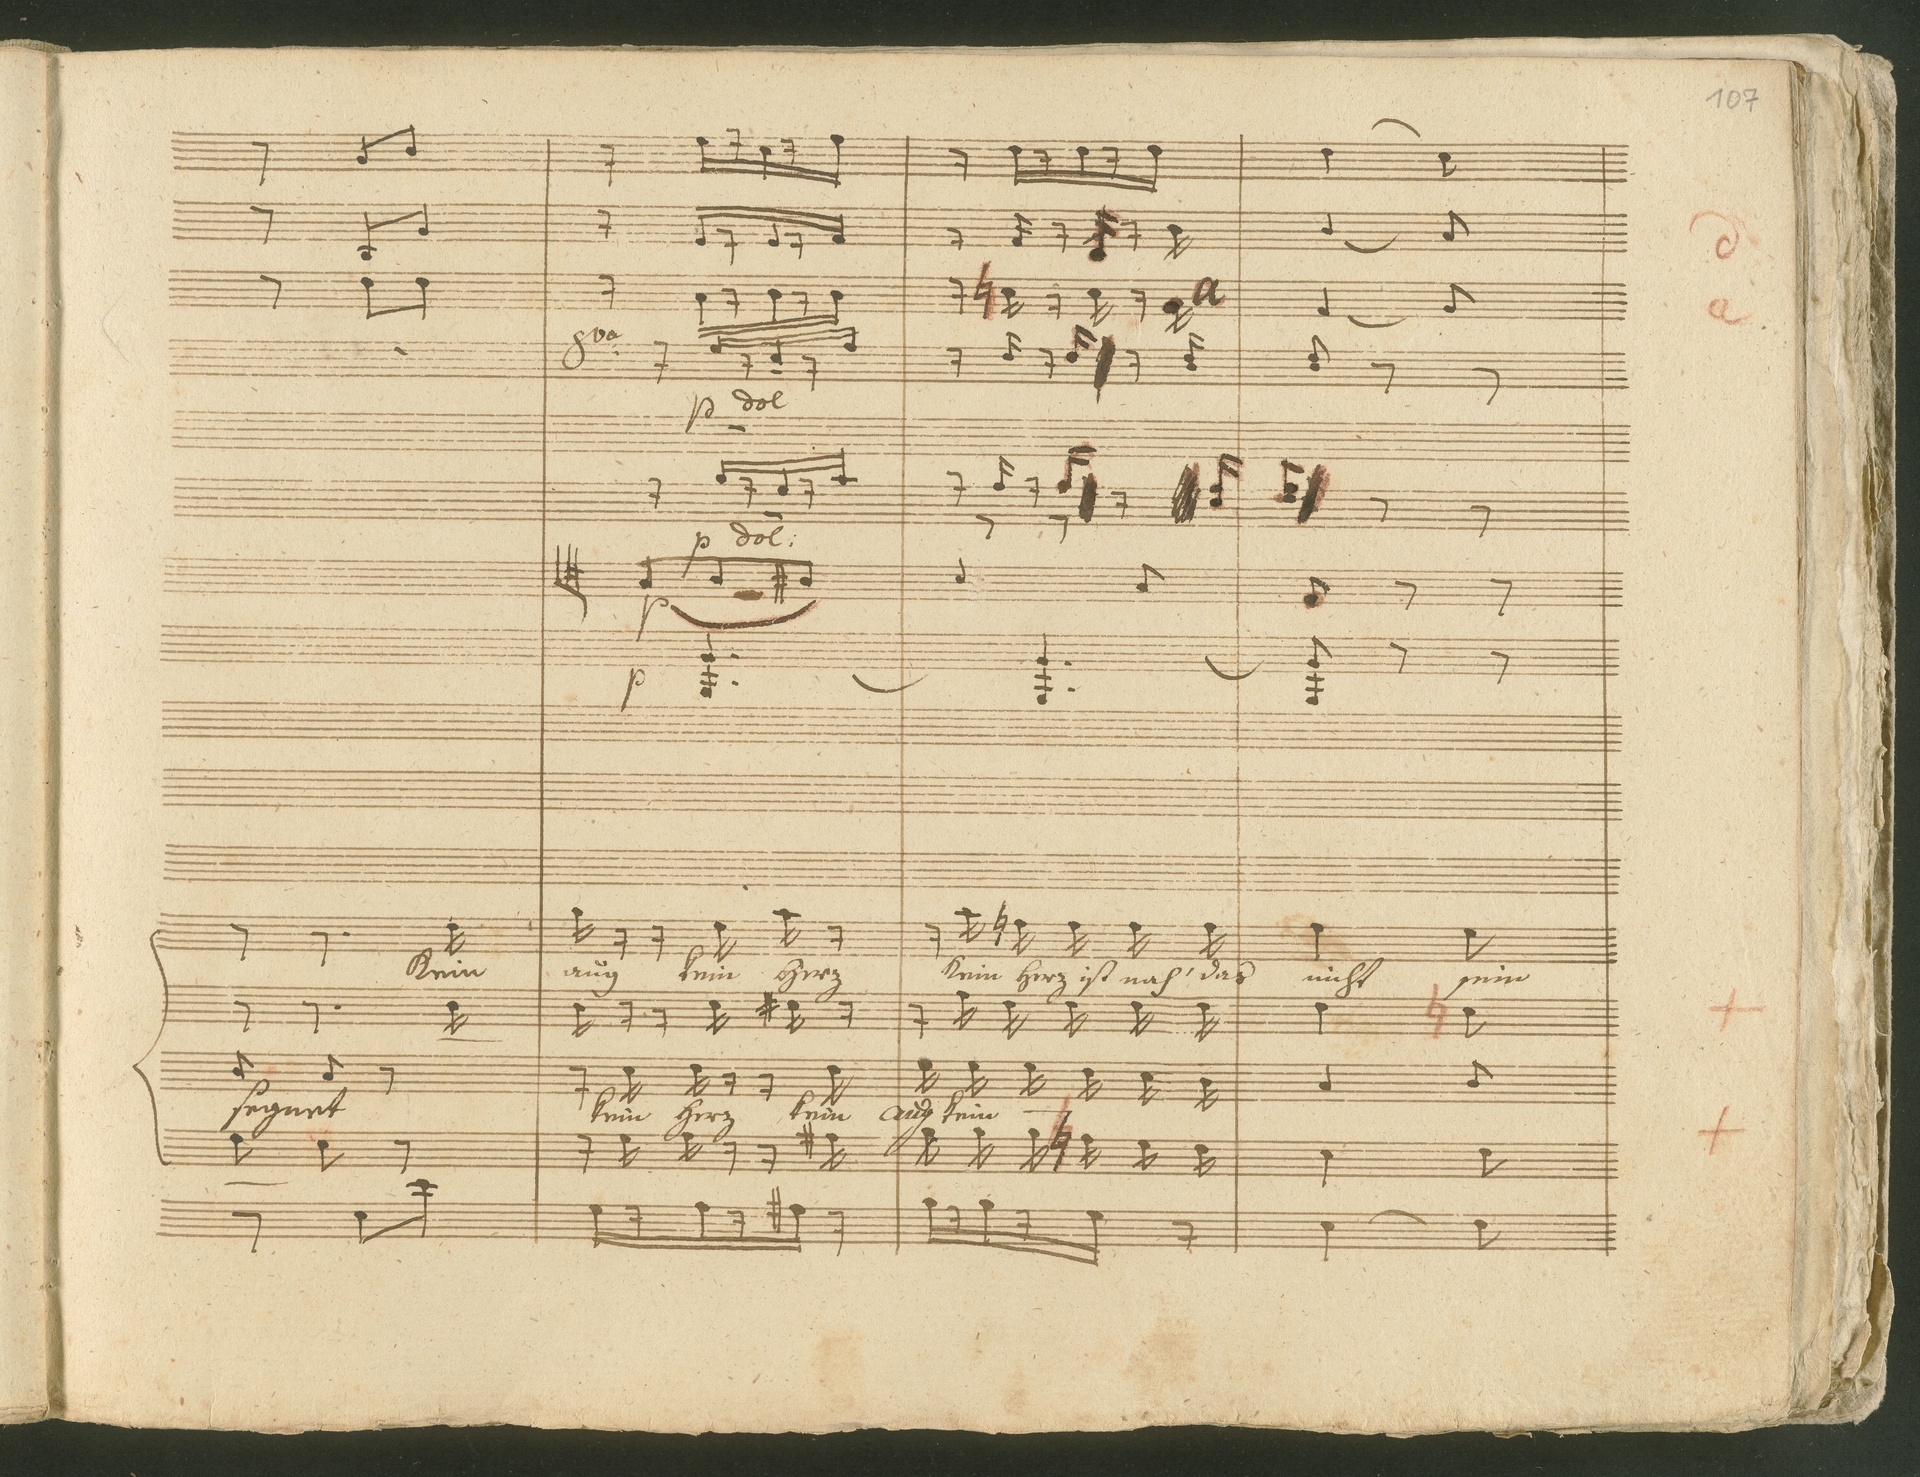 107
a
8va
p dol
p dol:
p
p
Kein aug kein Herz Kein Herz ist nah' das nicht sein
segnet kein Herz kein aug kein